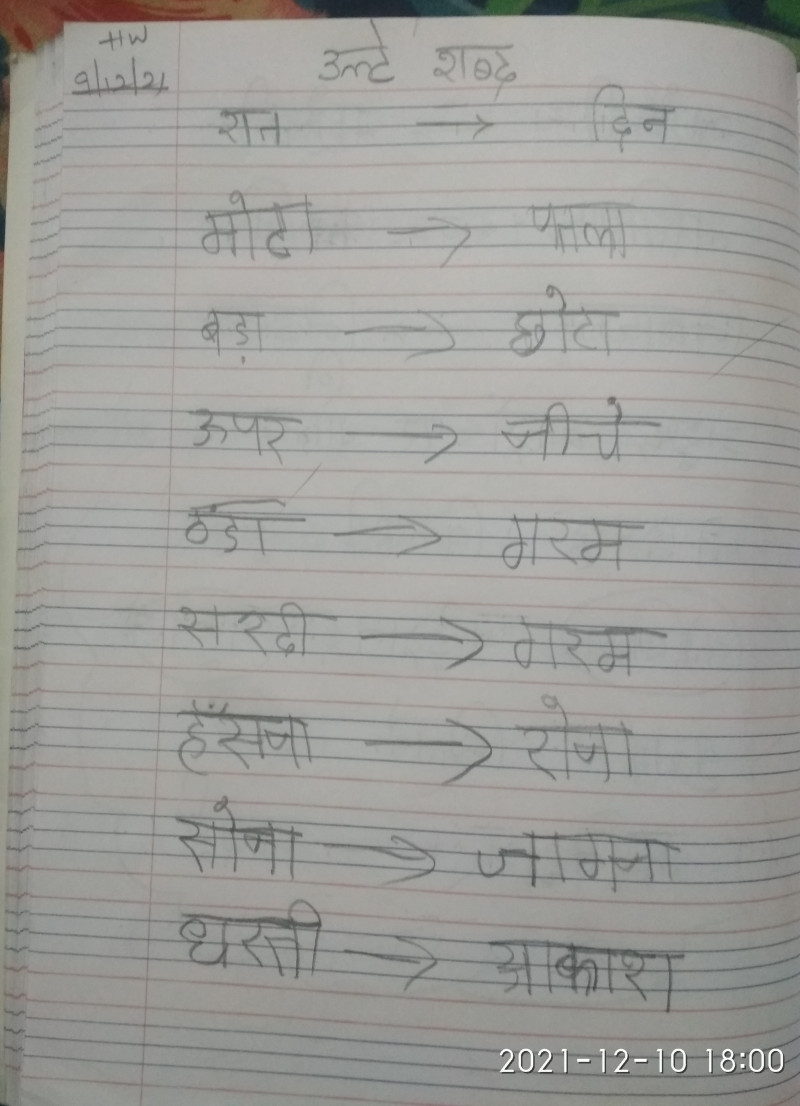 HW
9/12/21
उल्टे शब्द
रात → दिन
मोटा → पतला
बड़ा → छोटा
ऊपर → नीचे
ठंडा → गरम
सरदी → गरम
हँसना → रोना
सोना → जागना
धरती → आकाश
2021-12-10 18:00